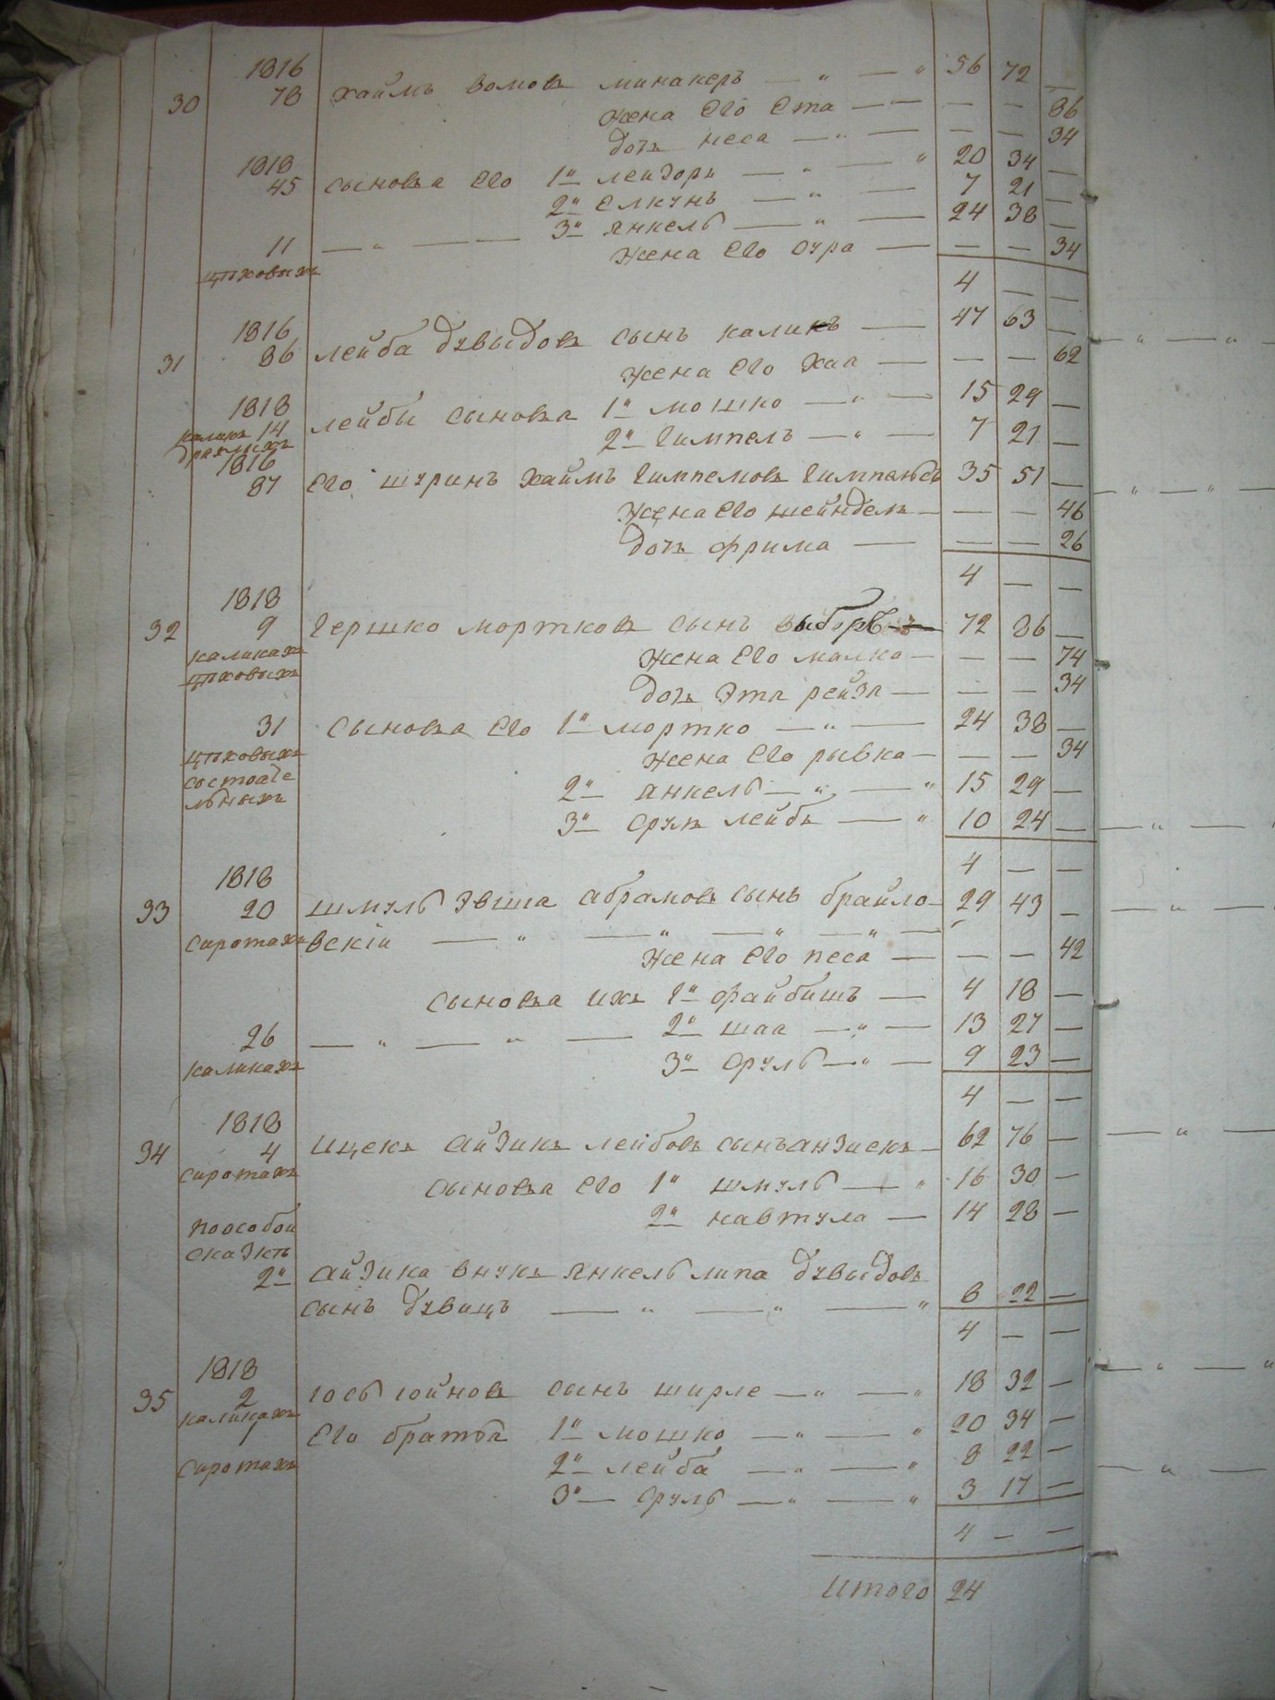 1816
30 78 Хаимъ Волковъ Минакеръ — „ — „ 56 72 —
жена его Ета — — — — 36
дочь Неса — „ — — — 34
1818
45 сыновья его 1й Лейзоръ — „ — „ 20 34 —
2й Елкунъ — „ — 7 21 —
11 — „ — — 3й Янкель — „ — 24 38 —
цѣховыхъ жена его Сура — — — 34
4 — —
1816
31 86 Лейба Дувыдовъ сынъ Каликъ — 47 63 —
жена его Хая — — — 62
1818
14 Лейбы сыновья 1й Мошко — „ — 15 29 —
2й Гимпель — „ — 7 21 —
1816
87 его шуринъ Хаимъ Гимпелевъ 35 51 —
жена его Шейндель — — — 46
дочь Фрима — — — 26
4 — —
1818
32 9 Гершко Мортковъ сынъ 72 86 —
каликахъ жена его Малка — — — 74
цѣховыхъ дочь Эта Рейза — — — 34
31 сыновья его 1й Мортко — „ — 24 38 —
цѣховыхъ жена его Рывка — — — 34
состояте
льныхъ 2й Янкель — „ — „ 15 29 —
3й Сруль Лейбъ — „ 10 24 —
4 — —
1818
33 20 Шмуль Эвша Абрамовъ сынъ Брайло- 29 43 —
сиротахъ вскій — „ — „ — „ — „ —
жена его Песа — — — 42
сыновья ихъ 1й Файбишъ — 4 18 —
26 — „ — „ — 2й Шая — „ — 13 27 —
каликахъ 3й Сруль — „ — 9 23 —
4 — —
1818
34 4 Ицекъ Айзикъ Лейбовъ сынъ 62 76 —
сиротахъ сыновья его 1й Шмуль — „ 16 30 —
2й Навтула — 14 28 —
по особой
сказкѣ
2й Айзика внукъ Янкель Липа Дувыдовъ
сынъ — „ — „ — „ 8 22 —
4 — —
1818
35 2 Іось Іойновъ сынъ Ширле — „ — „ 18 32 —
каликахъ
1 его братья 1й Мошко — „ — „ 20 34 —
сиротахъ 2й Лейба — „ — „ 8 22 —
3й — Сруль — „ — „ 3 17 —
4 — —
Итого 24